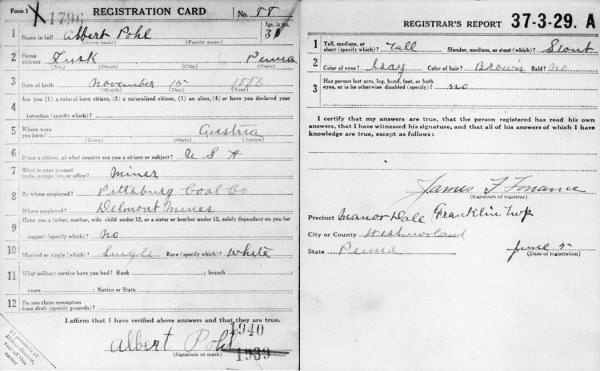 Form 1
1796
REGISTRATION CARD
No. 88
1 Name in full Albert Pohl
(Given name) (Family name)
Age, in yrs.
2 Home address Penna
(No.) (Street) (City) (State)
3 Date of birth November 15 1886
(Month) (Day) (Year)
4 Are you (1) a natural-born citizen, (2) a naturalized citizen, (3) an alien, (4) or have you declared your
intention (specify which)?
5 Where were you born? Austria
(Town) (State) (Nation)
6 If not a citizen, of what country are you a citizen or subject? U S A
7 What is your present trade, occupation, or office? Miner
8 By whom employed? Pittsburg Coal Co
Where employed? Delmont Mines
9 Have you a father, mother, wife, child under 12, or a sister or brother under 12, solely dependent on you for
support (specify which)? No
10 Married or single (which)? Single Race (specify which)? White
11 What military service have you had? Rank ; branch
; years ; Nation or State
12 Do you claim exemption from draft (specify grounds)?
I affirm that I have verified above answers and that they are true.
1940
Albert Pohl 1939
(Signature or mark)
If person is of African descent, tear off this corner
REGISTRAR'S REPORT 37-3-29. A
1 Tall, medium, or short (specify which)? Tall Slender, medium, or stout (which)? Stout
2 Color of eyes? Gray Color of hair? Brown Bald? No
3 Has person lost arm, leg, hand, foot, or both eyes, or is he otherwise disabled (specify)? no
I certify that my answers are true, that the person registered has read his own
answers, that I have witnessed his signature, and that all of his answers of which I have
knowledge are true, except as follows:
James F
(Signature of registrar)
Precinct Manor Dale Franklin Twp
City or County Westmoreland
State Penna
June 5
(Date of registration)